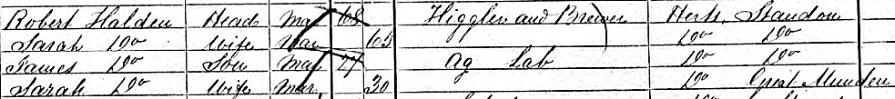 Robert Halden Head Mar 68 Higgler and Brewer Herts, Standon
Sarah Do Wife Mar 65 Do Do
James Do Son Mar 27 Ag Lab Do Do
Sarah Do Wife Mar 30 Do Great Munden